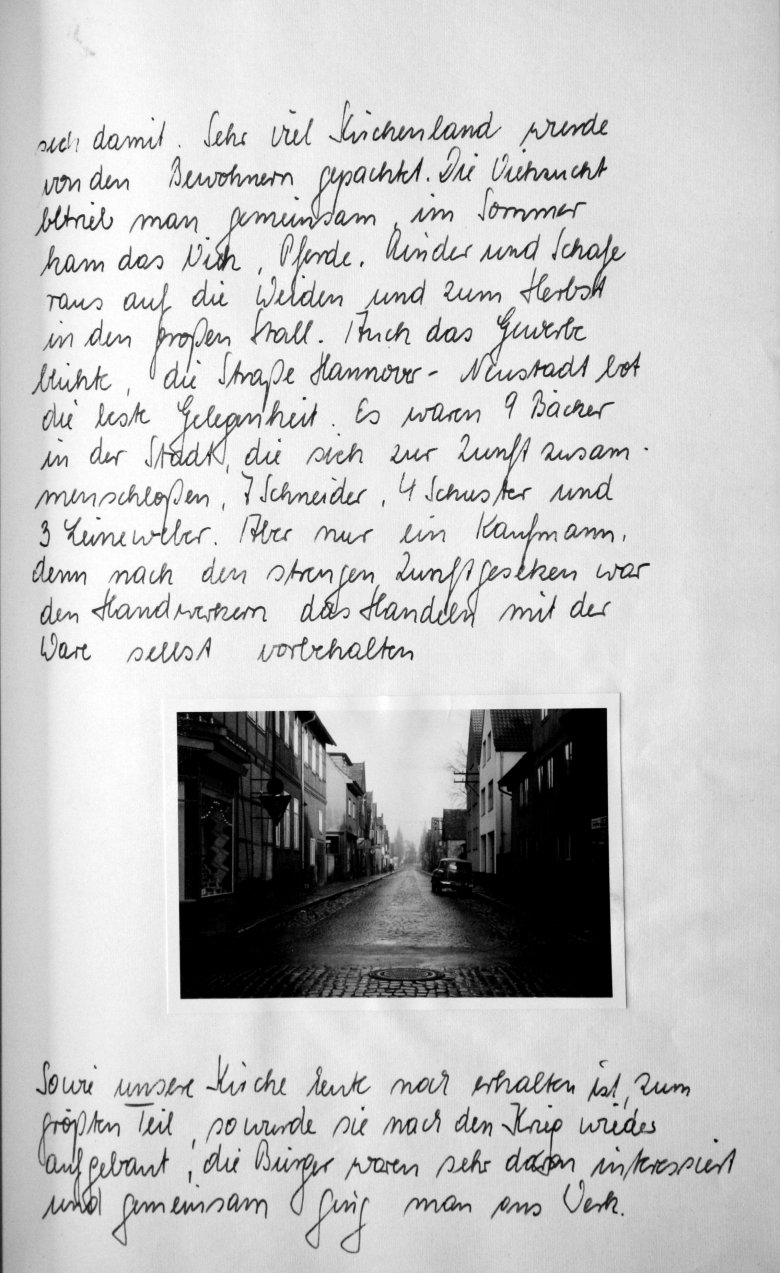 sich damit. Sehr viel Kirchenland wurde
von den Bewohnern gepachtet. Die Viehzucht
betrieb man gemeinsam, im Sommer
kam das Vieh, Pferde, Rinder und Schafe
raus auf die Weiden und zum Herbst
in den großen Stall. Auch das Gewerbe
blühte, die Straße Hannover - Neustadt bot
die beste Gelegenheit. Es waren 9 Bäcker
in der Stadt, die sich zur Zunft zusam-
menschloßen, 7 Schneider, 4 Schuster und
3 Leineweber. Aber nur ein Kaufmann,
denn nach den strengen Zunftgesetzen war
den Handwerkern das Handeln mit der
Ware selbst vorbehalten
Sowie unsere Kirche heute noch erhalten ist, zum
größten Teil, so wurde sie nach den Krieg wieder
aufgebaut, die Bürger waren sehr daran interessiert
und gemeinsam ging man ans Werk.